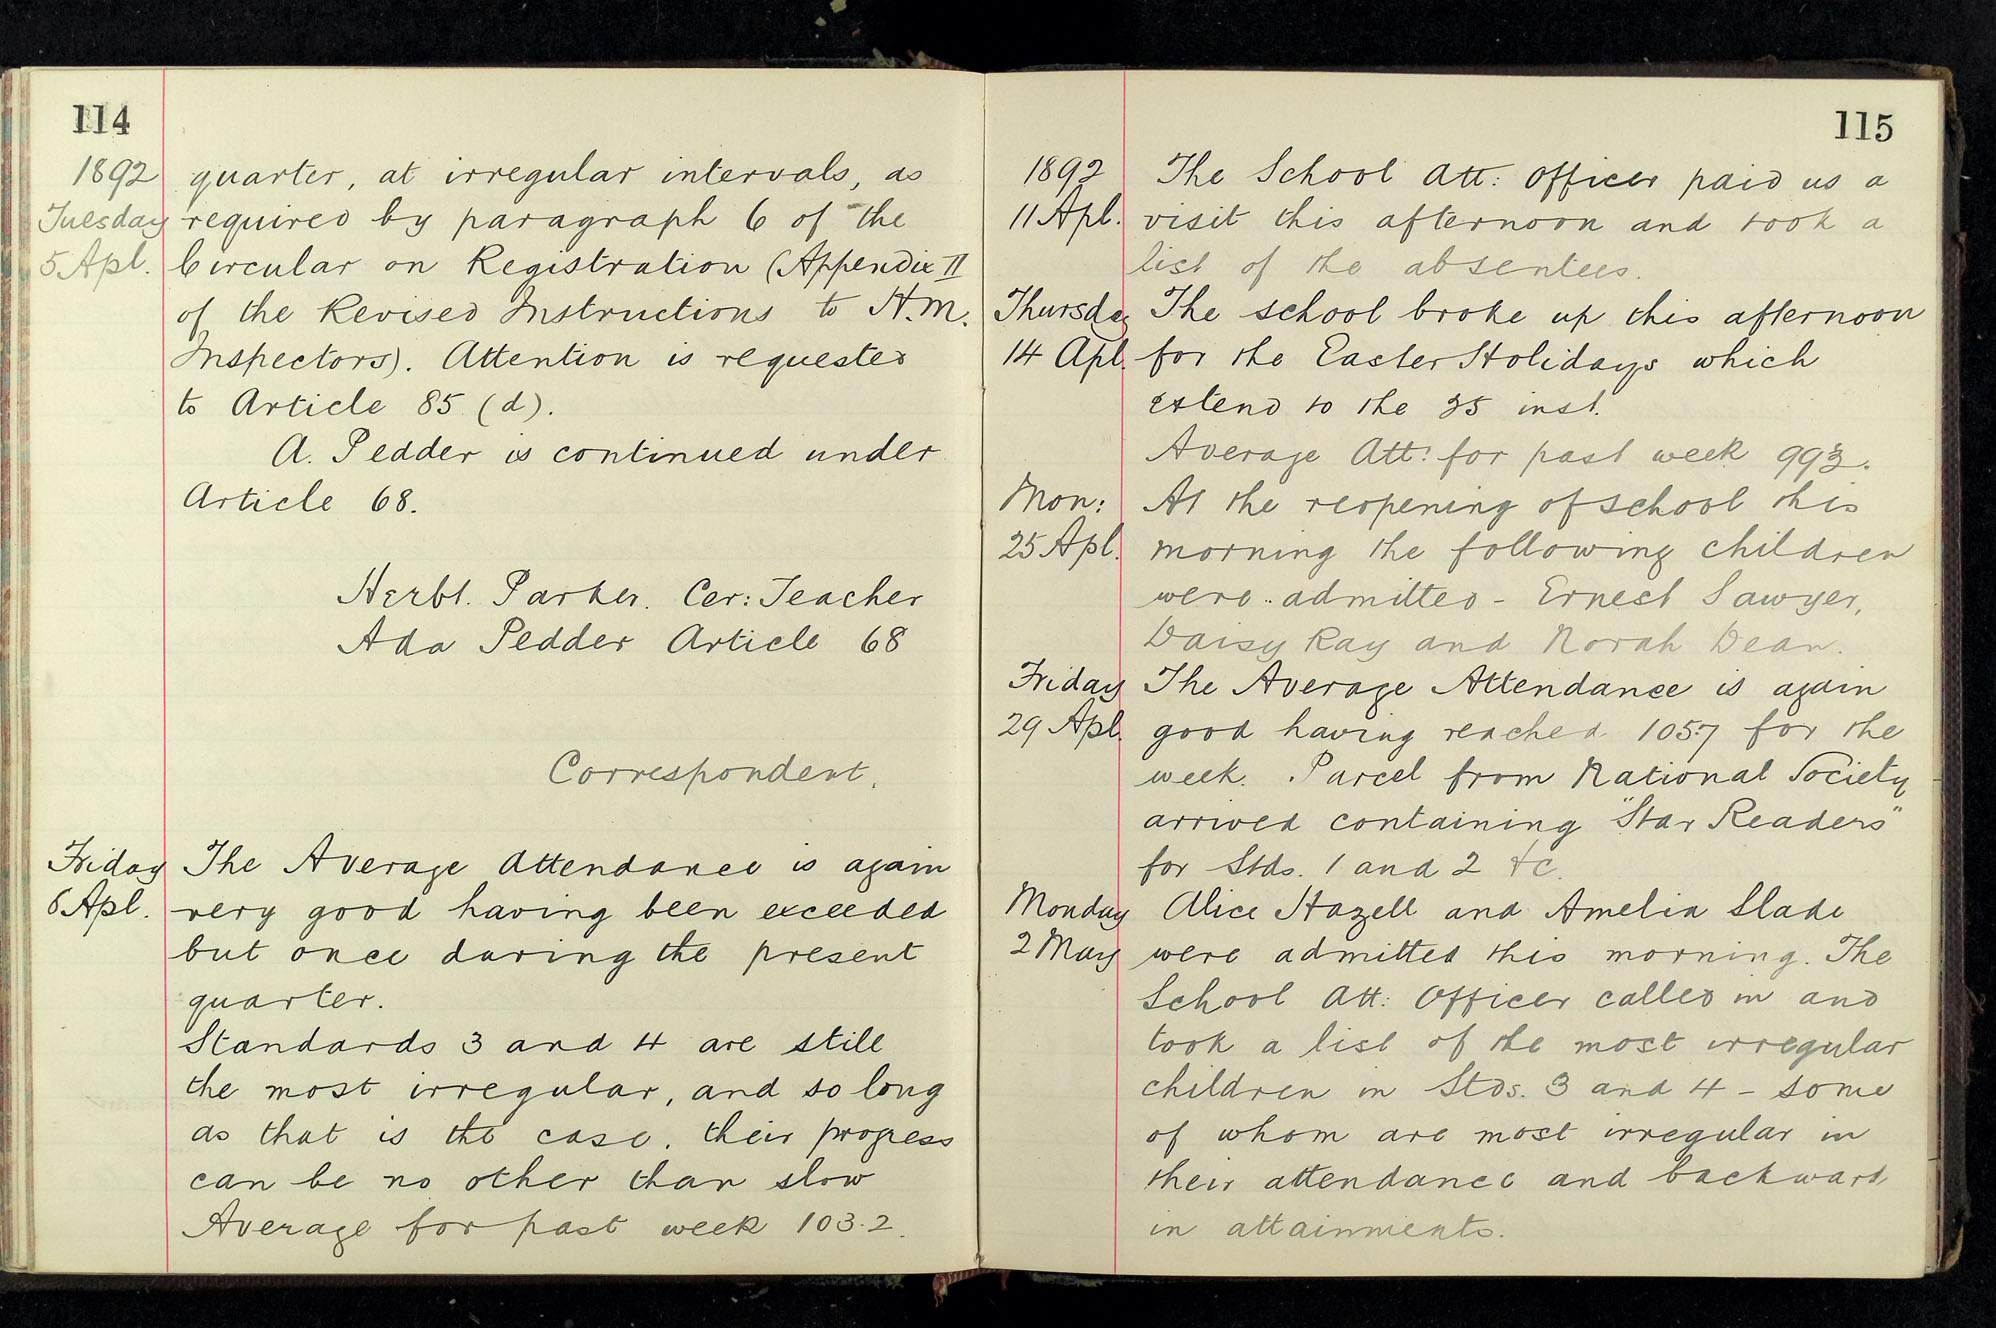 114
1892 quarter, at irregular intervals, as
Tuesday required by paragraph 6 of the
5 Apl. Circular on Registration (Appendix II
of the Revised Instructions to H.M.
Inspectors). Attention is requested
to Article 85 (d).
A. Pedder is continued under
Article 68.
Herbt. Parker. Cer: Teacher
Ada Pedder Article 68
Correspondent.
Friday The Average Attendance is again
Apl. very good having been exceeded
but once during the present
quarter.
Standards 3 and 4 are still
the most irregular, and so long
as that is the case, their progress
can be no other than slow
Average for past week 103.2.
115
1892 The School Att: Officer paid us a
11 Apl. visit this afternoon and took a
list of the absentees.
Thursday The school broke up this afternoon
14 Apl. for the Easter Holidays which
extend to the 25 inst.
Average Att: for past week 993.
Mon: At the reopening of school this
25 Apl. morning the following children
were admitted - Ernest Sawyer,
Daisy Ray and Norah Dean.
Friday The Average Attendance is again
29 Apl. good having reached 105.7 for the
week. Parcel from National Society
arrived containing "Star Readers"
for Stds. 1 and 2 &c.
Monday Alice Hazell and Amelia Slade
2 May were admitted this morning. The
School Att: Officer called in and
took a list of the most irregular
children in Stds. 3 and 4 - some
of whom are most irregular in
their attendance and backward
in attainments.